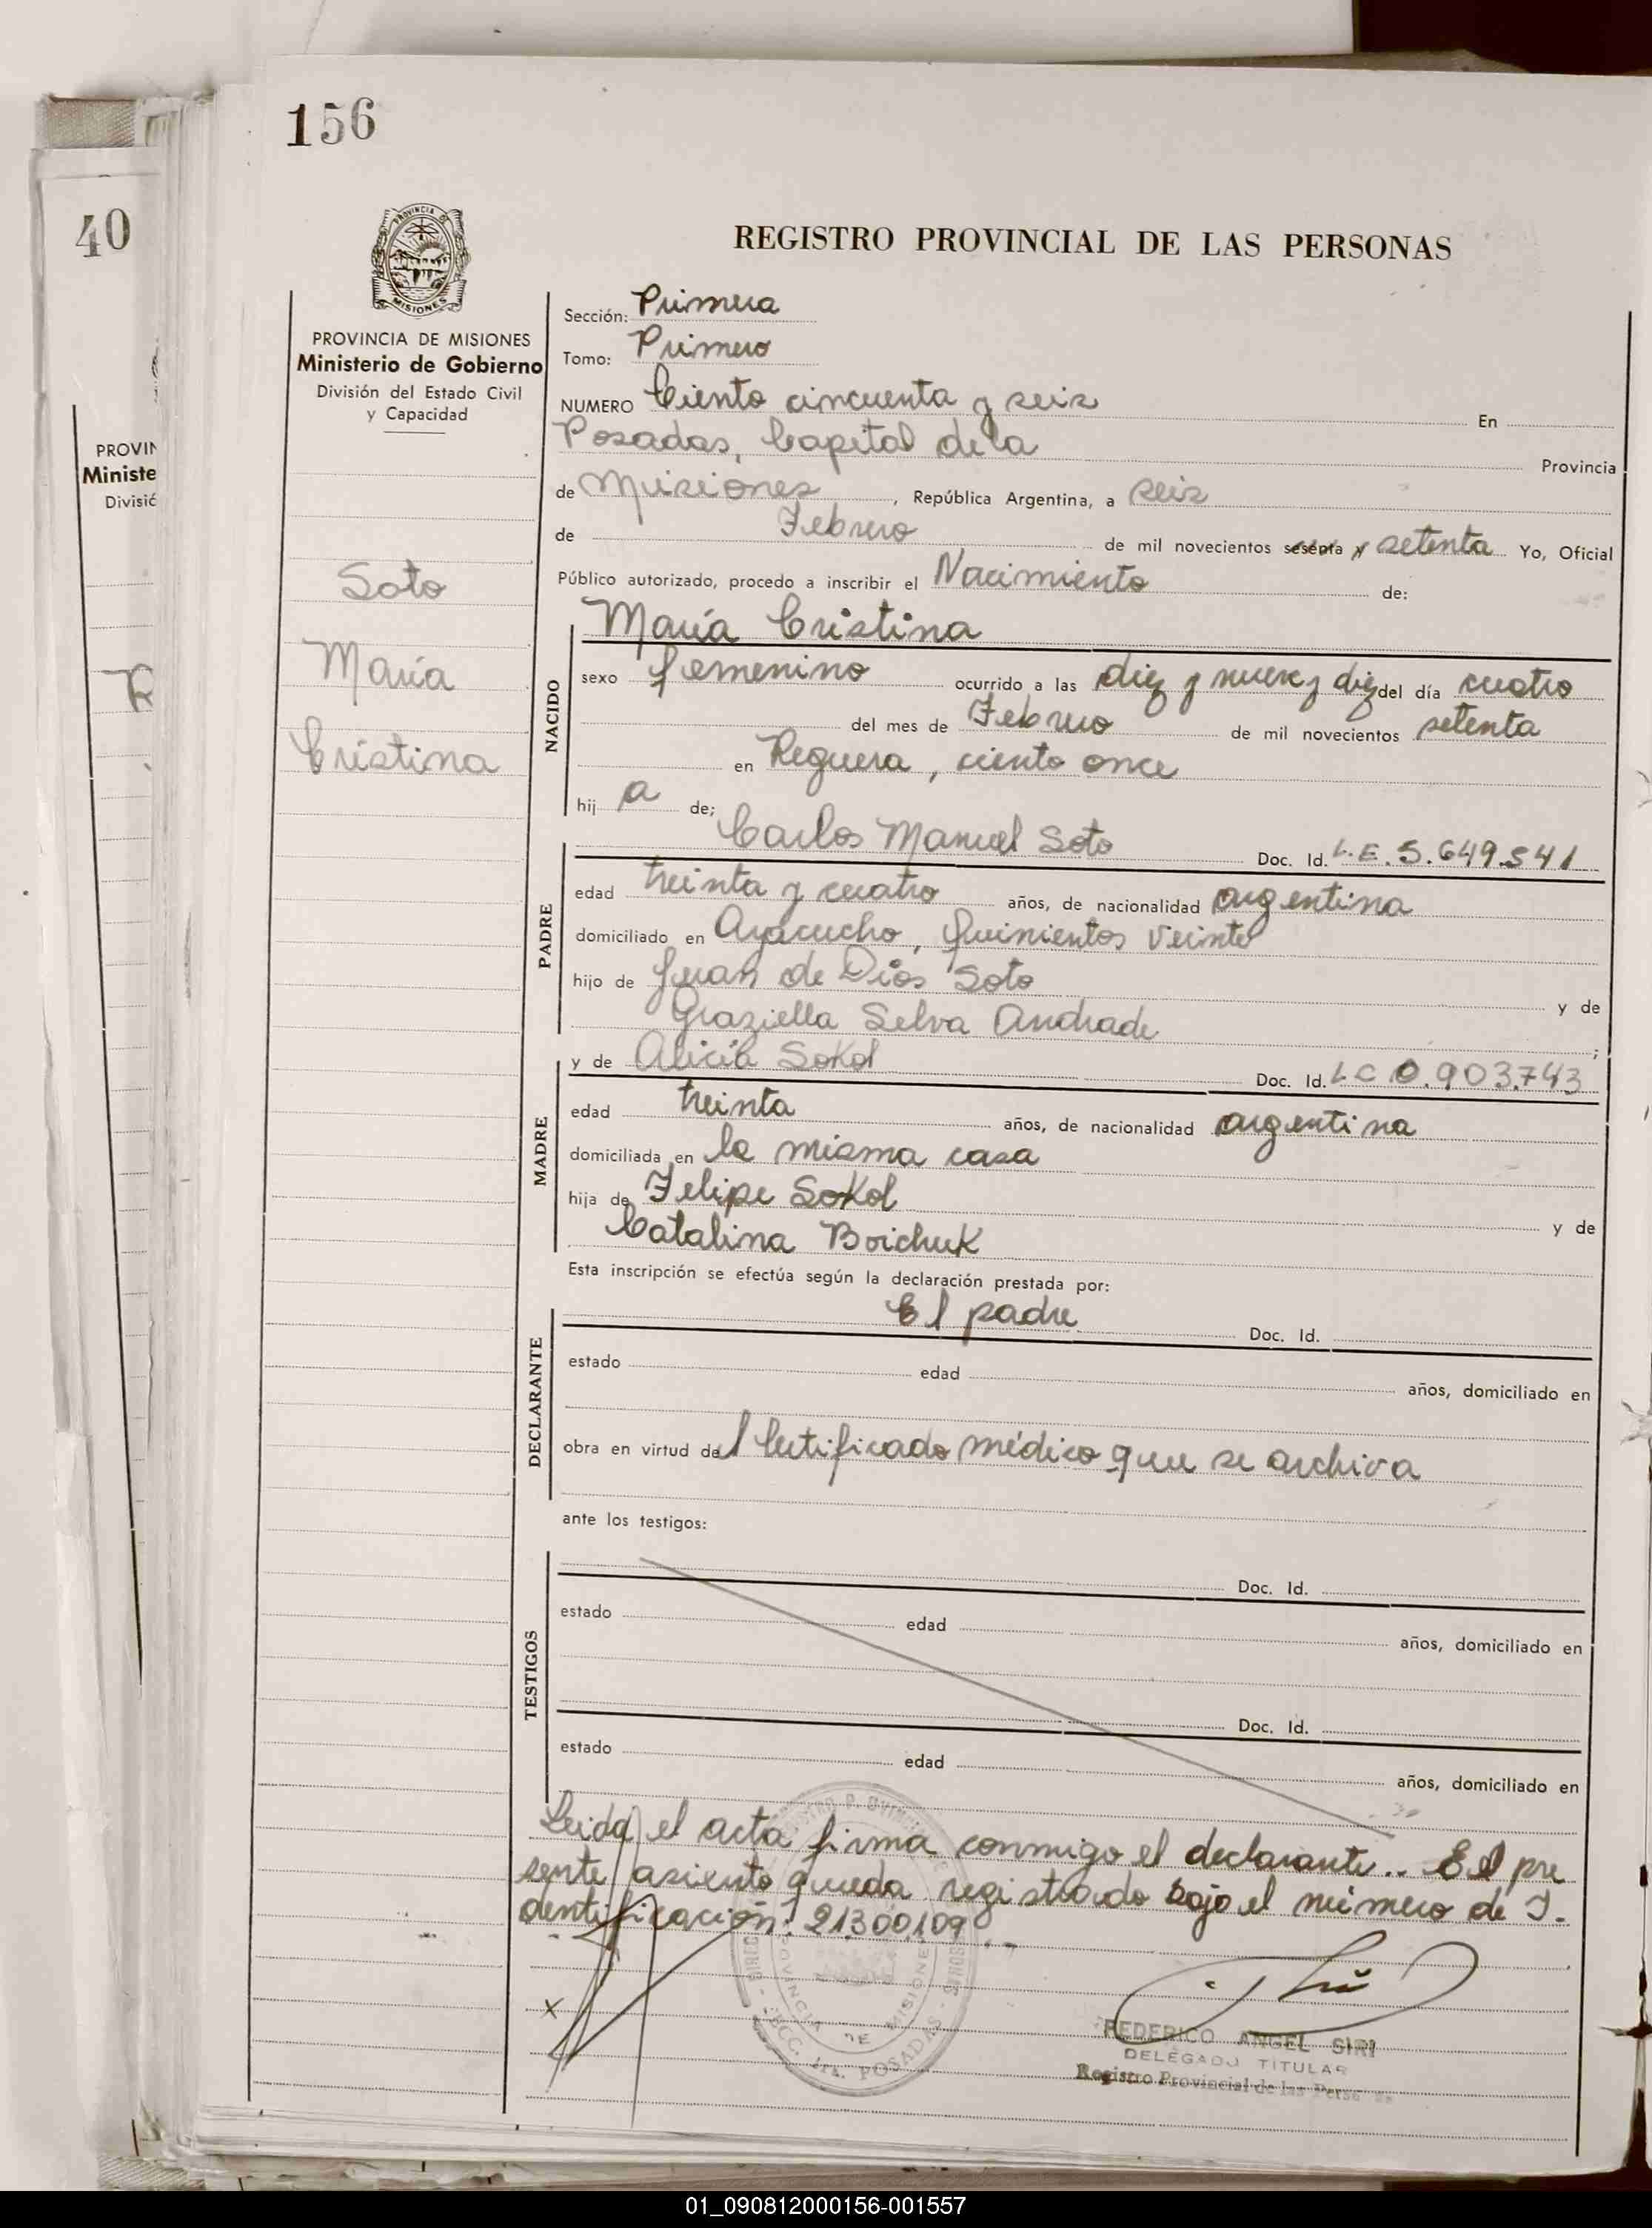 156
40
REGISTRO PROVINCIAL DE LAS PERSONAS
PROVINCIA
MISIONES
PROVINCIA DE MISIONES
Ministerio de Gobierno
División del Estado Civil
y Capacidad
PROVIN
Ministe
Divisió
Soto
María
Cristina
Sección: Primera
Tomo: Primero
NUMERO Ciento cincuenta y seis En
Posadas, Capital de la Provincia
de Misiones, República Argentina, a seis
de Febrero de mil novecientos sesenta y setenta Yo, Oficial
Público autorizado, procedo a inscribir el Nacimiento de:
María Cristina
NACIDO
sexo femenino ocurrido a las diez y nueve y diez del día cuatro
del mes de Febrero de mil novecientos setenta
en Reguera, ciento once
hij a de;
Carlos Manuel Soto Doc. Id. L.E. 5.649.541
PADRE
edad treinta y cuatro años, de nacionalidad argentina
domiciliado en Ayacucho, quinientos veinte
hijo de Juan de Dios Soto y de
Graziella Selva Andrade ;
y de Alicia Sokol Doc. Id. L C 0.903.743
MADRE
edad treinta años, de nacionalidad argentina
domiciliada en la misma casa
hija de Felipe Sokol y de
Catalina Boichuk
Esta inscripción se efectúa según la declaración prestada por:
El padre Doc. Id.
DECLARANTE
estado edad años, domiciliado en
obra en virtud del Certificado médico que se archiva
ante los testigos:
Doc. Id.
TESTIGOS
estado edad años, domiciliado en
Doc. Id.
estado edad años, domiciliado en
Leida el acta firma conmigo el declarante.. El pre
sente asiento queda registrado bajo el número de I.
dentificación: 21300109..
x
PROVINCIA DE MISIONES
SECC. 1ra. POSADAS
FEDERICO ANGEL SIRI
DELEGADO TITULAR
Registro Provincial de las Personas
01_090812000156-001557